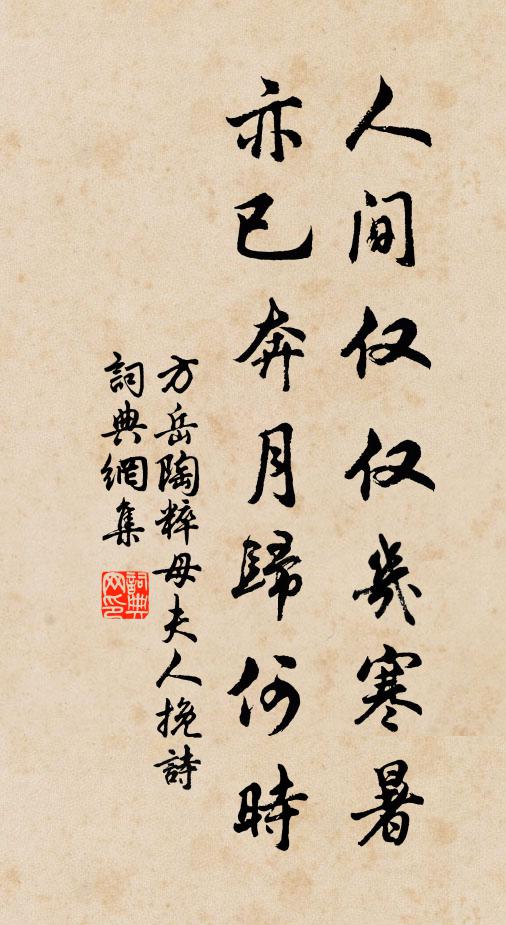 人间仅仅幾寒暑
亦已奔月歸何時
方岳陶粹母夫人挽詩
詞典網集
詞典网印